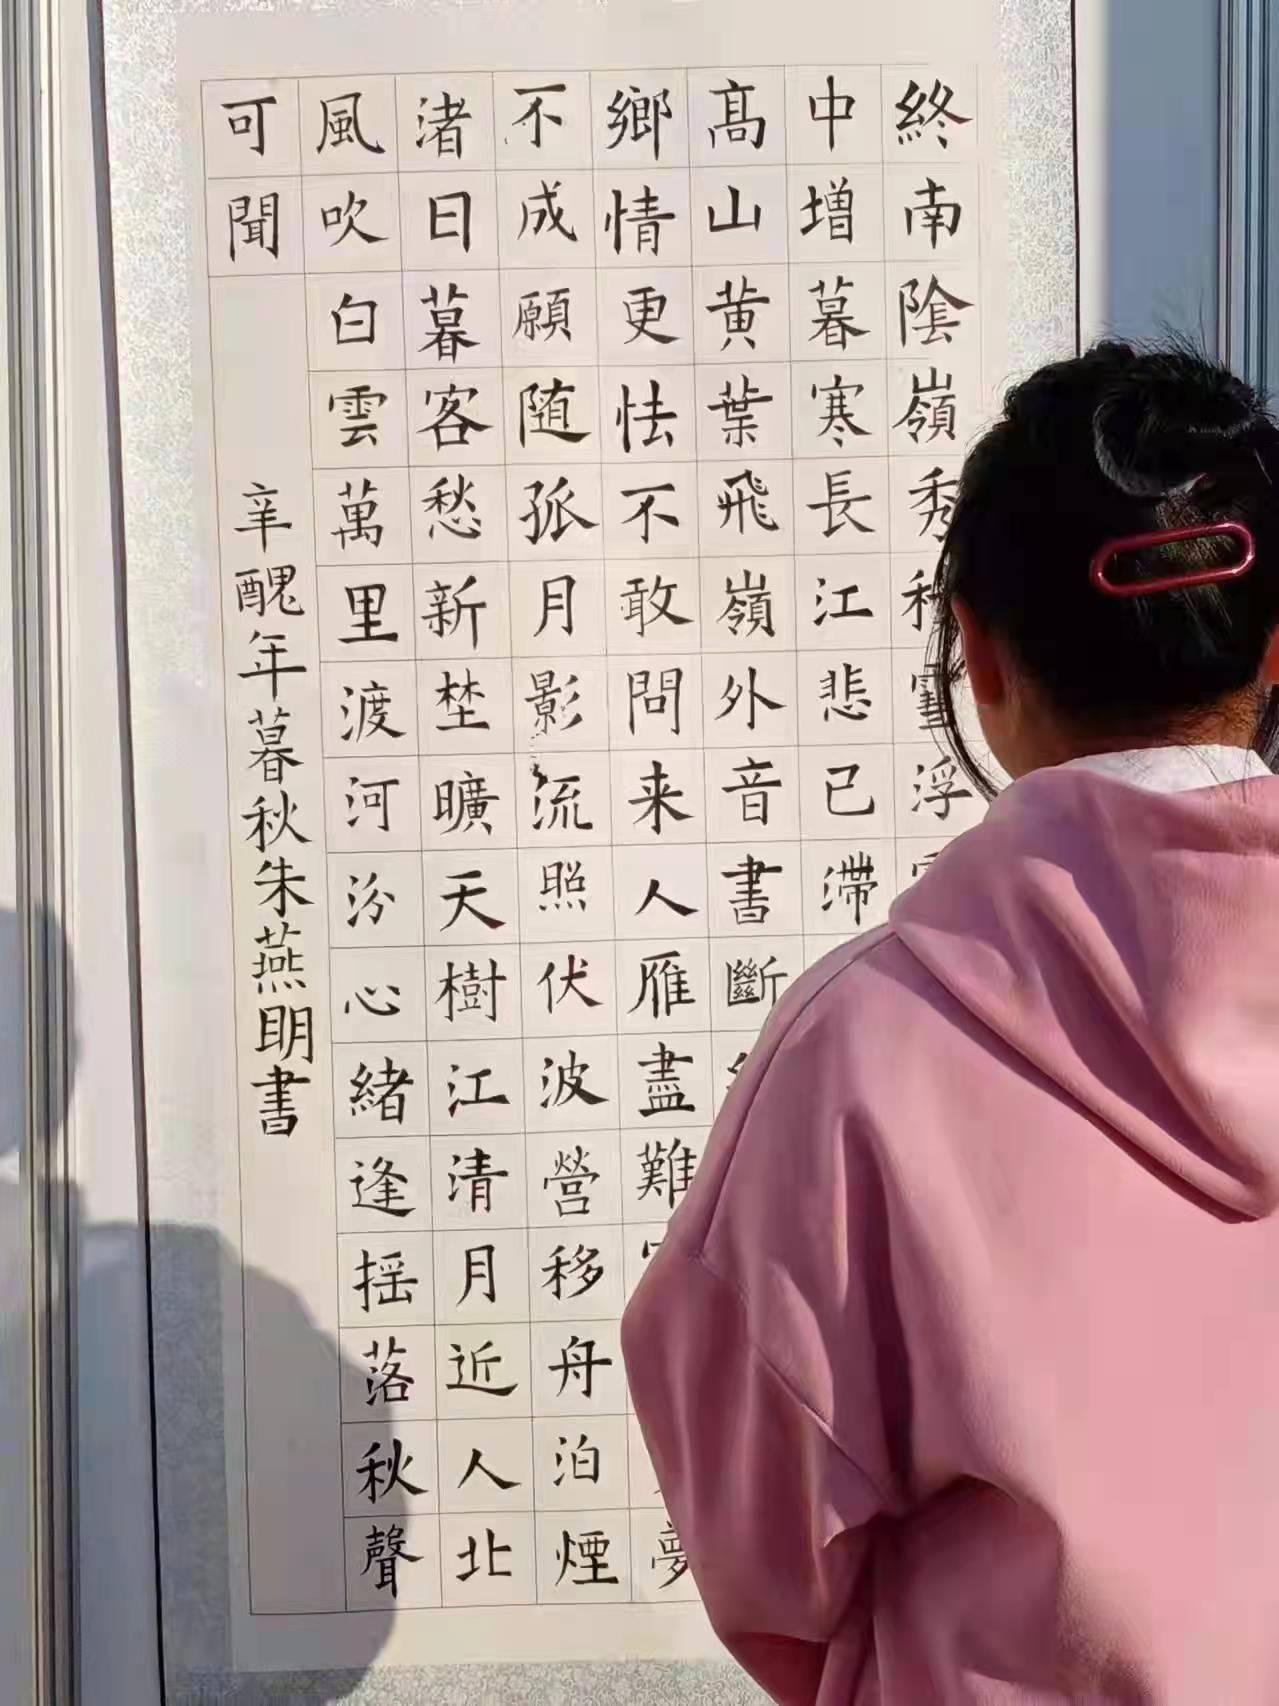 終南陰嶺秀
浮
中增暮寒長江悲已滯
高山黄葉飛嶺外音書斷
鄉情更怯不敢問来人雁盡難
夢
不成願随孤月影流照伏波營移舟泊煙
渚日暮客愁新埜曠天樹江清月近人北
風吹白雲萬里渡河汾心緒逢揺落秋聲
可聞
辛醜年暮秋朱燕明書